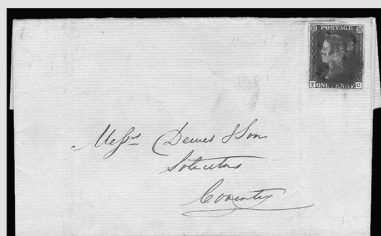 POSTAGE
ONE PENNY
Messrs Dewes & Son
Solicitors
Coventry